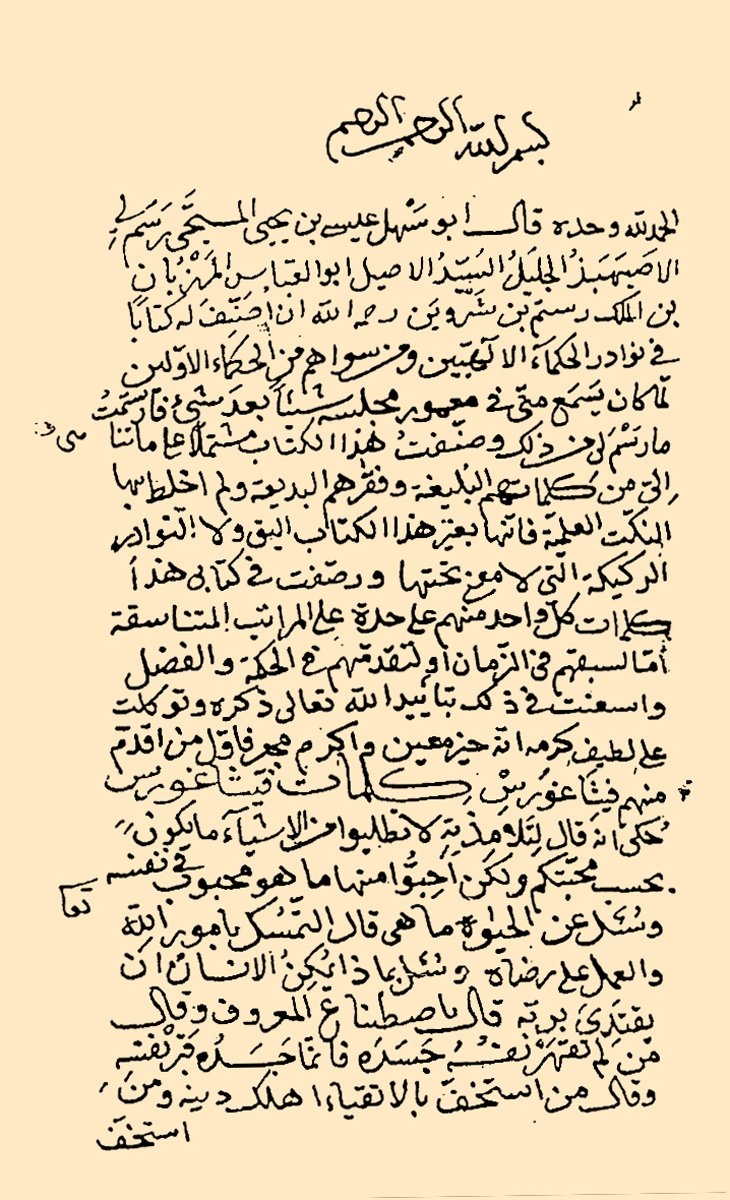 بسم الله الرحمن الرحيم
الحمد لله وحده قال ابو سَهْل عيسى بن يحيى المسيحَّى رَسَم لِي
الاصَبهَبذُ الجليلُ السَيّدُ الاصيل ابو العباس المَرْزُبان
بن الملك رستم بن شَروين رحمه الله ان اصَنّفَ له كتابًا
فى نوادر الحكمآء الالٓهيّين ومن سواهم من الحكماء الاوّلين
لمّا كان يَسمَع منّى فى معمور مجلسه شيئاً بعدَ شئٍ فارتسَمتُ
ما رَسَمَ لى من ذلك وصنّفتُ هذا الكتاب مشتملاً على ما تنا
الىّ من كلماتهم البُليغة وفقرهم البديعة ولم اخلط بها
النكّت العلميّة فانّها بغير هذا الكتاب اليق ولا النوادر
الركيكة الّتى لا معنى تحتها ورصّفت فى كتابى هذا
كلمات كلّ واحد منهم على حدة على المراتب المتناسقة
امّا لسبقهم فى الزّمان او لتقدّمهم فى الحكمة والفضل
واستعنت فى ذلك بتأييد الله تعالى ذكره وتوكلت
على لطيف كرمه انّه خير معين واكرم فاقول من اقدَم
منهم فيثاغورسْ كلمات فيثاغورس
حُكى انّه قال لِتَلامِذَتِهِ لا تطلبوا من الاشيآء ما يكونِ
بحسب محبّتكم ولكن اَحِبُّوا منها ما هو محبوب فى نفسه
وسُئل عن الحيٰوة ما هى قال التَمسّك بامور الله
والعمل على رضاه وسُئل بماذا يُمكِنُ الانسانُ ان
يقتدىَ بربّه قال باصطناع المعروف وقال
مَن لم تَقهَرْ نَفْسُه جَسَدَه فانّما جَسَدُه قبرُ نفسِه
وقال من استخفّ بالاتقياء اهلك دينه ومَن
استخفّ